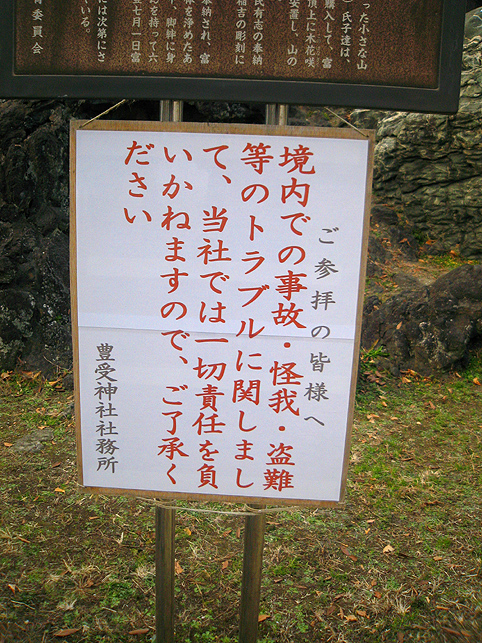 った小さな山
）氏子達は、
購入して、富
頂上に木花咲
民有志の奉納
安置し、山の
稲吉の彫刻に
奉納され、富
体を浄めたあ
、脚絆に身
を持って六
月一日富
は次第にさ
いる。
育委員会
ご参拝の皆様へ
境内での事故・怪我・盗難
等のトラブルに関しまし
て、当社では一切責任を負
いかねますので、ご了承く
ださい
豊受神社社務所